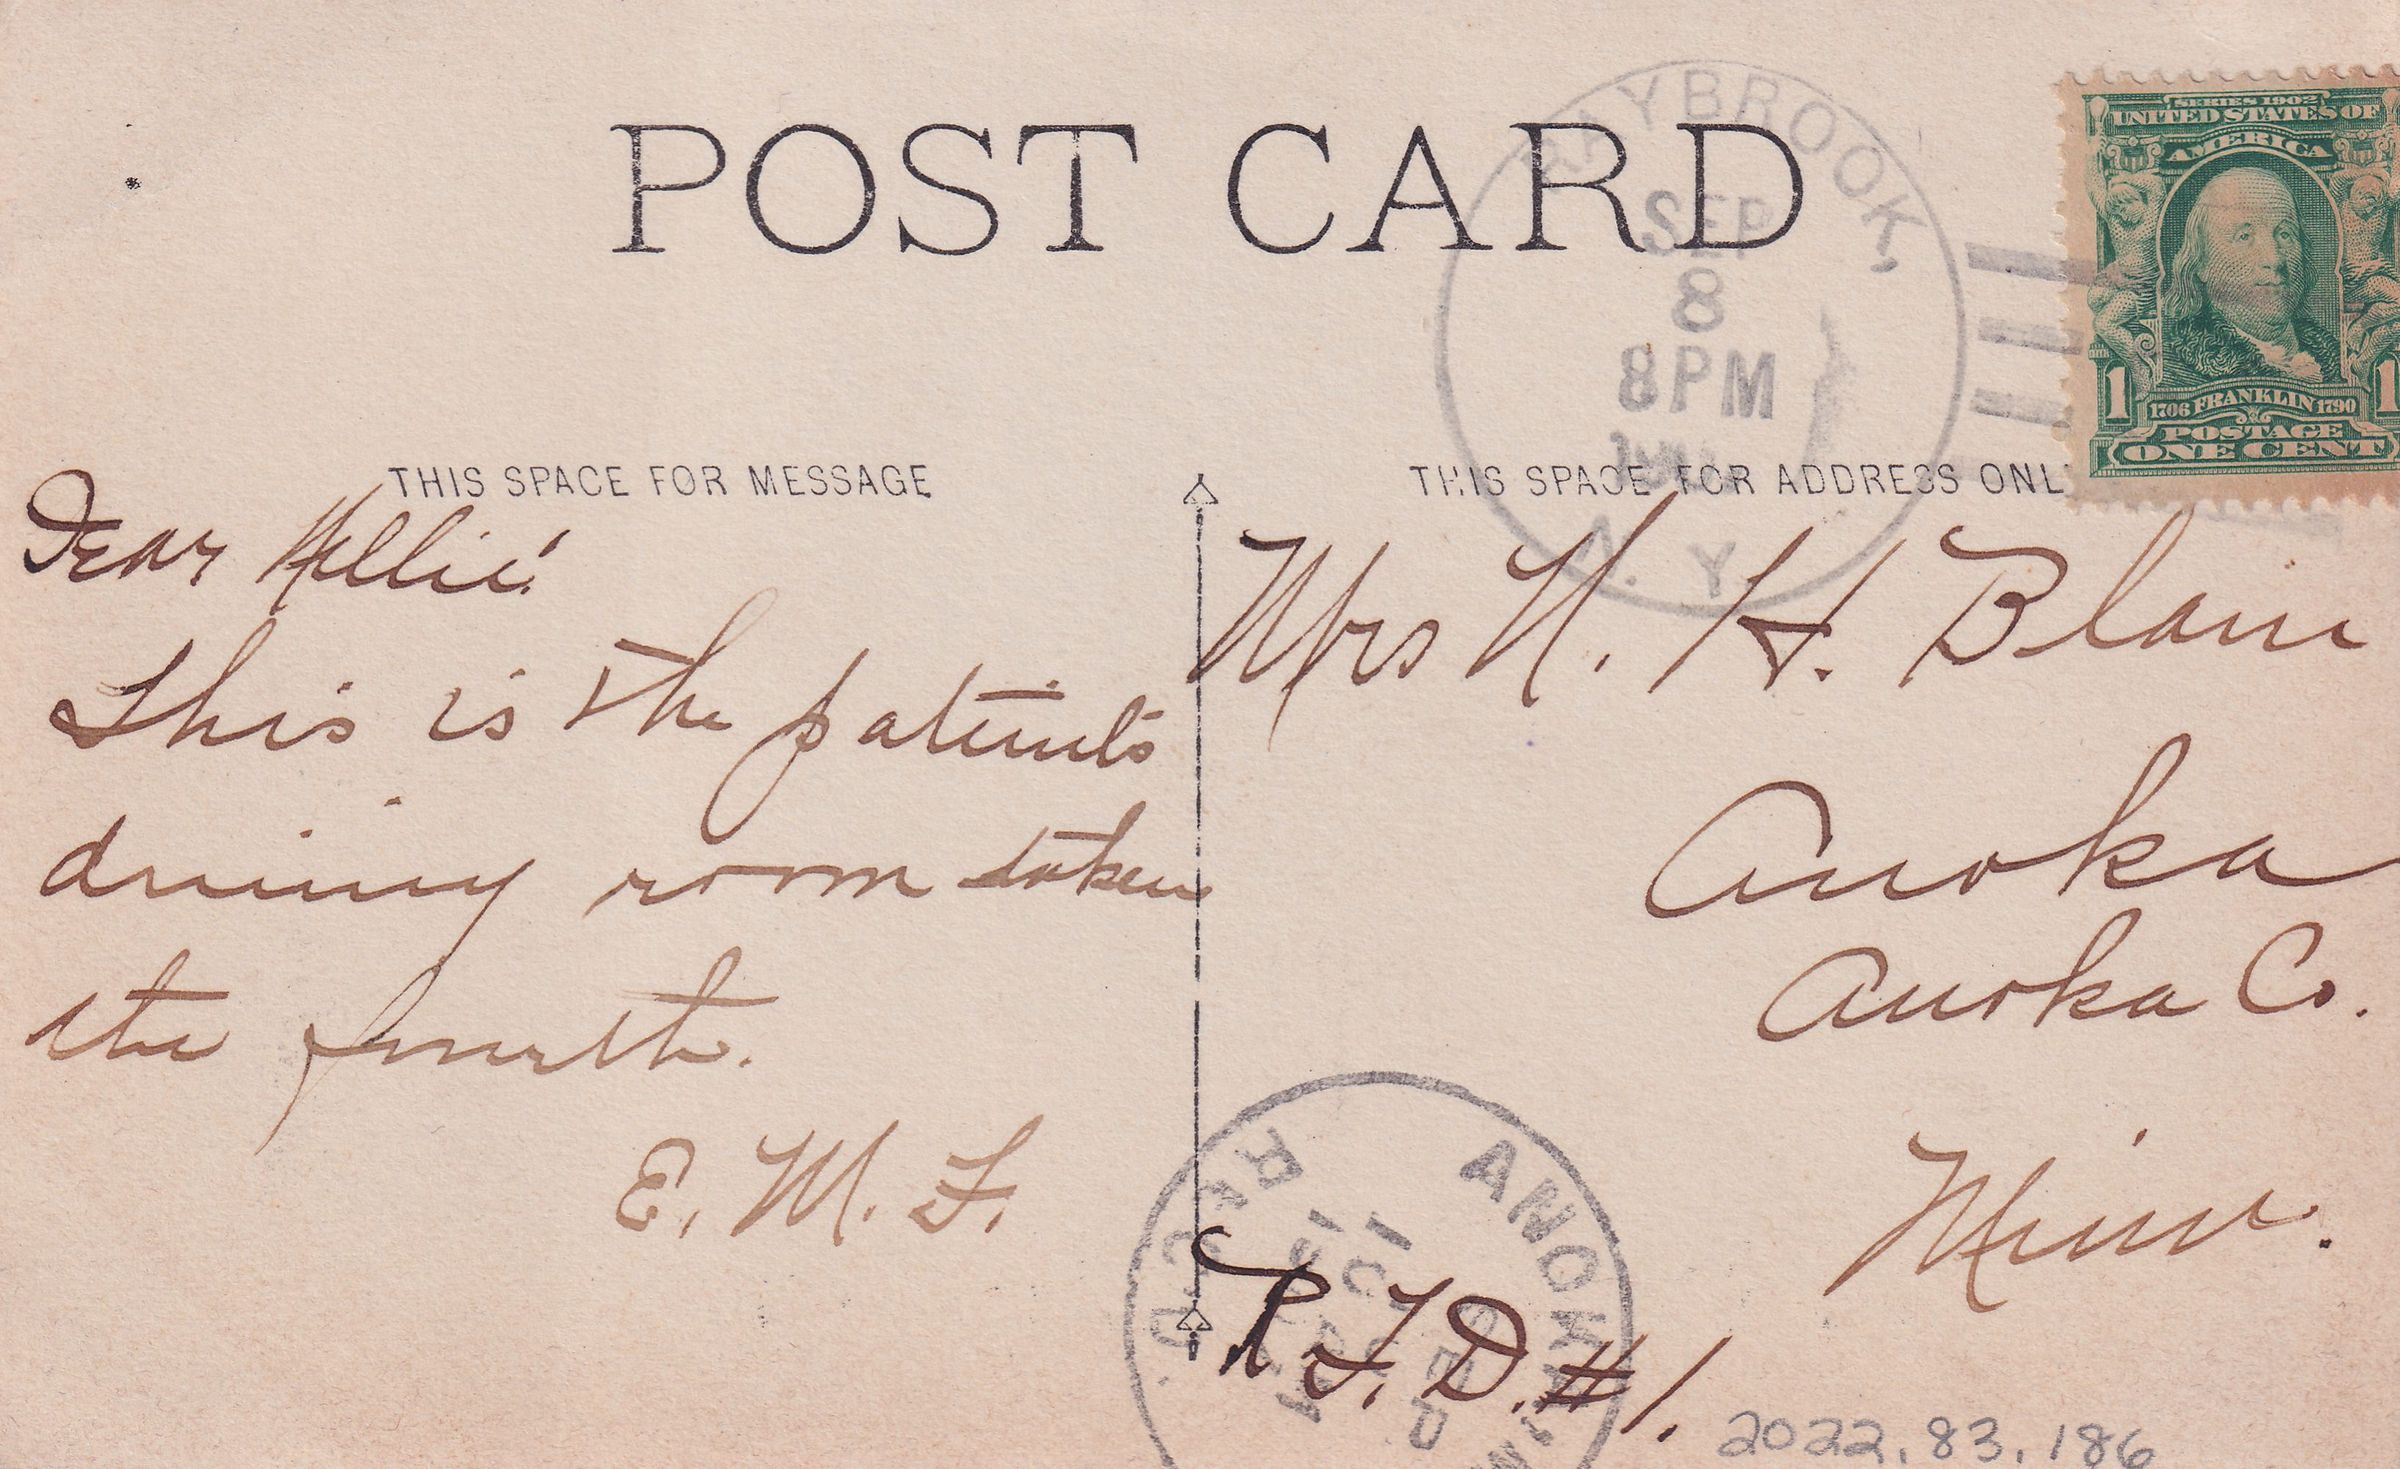 POST CARD
RAYBROOK,
SEP
8
8PM
N.Y.
SERIES 1902
UNITED STATES OF
AMERICA
1 1706 FRANKLIN 1790 1
POSTAGE
ONE CENT
THIS SPACE FOR MESSAGE
Dear Nellie:
This is the patients
dining room taken
the fourth.
E. M. F.
THIS SPACE FOR ADDRESS ONL
Mrs N. H. Blair
Anoka
Anoka Co.
Minn.
R. F. D. #1.
ANOKA
REC'D.
SEP
2022.83.186